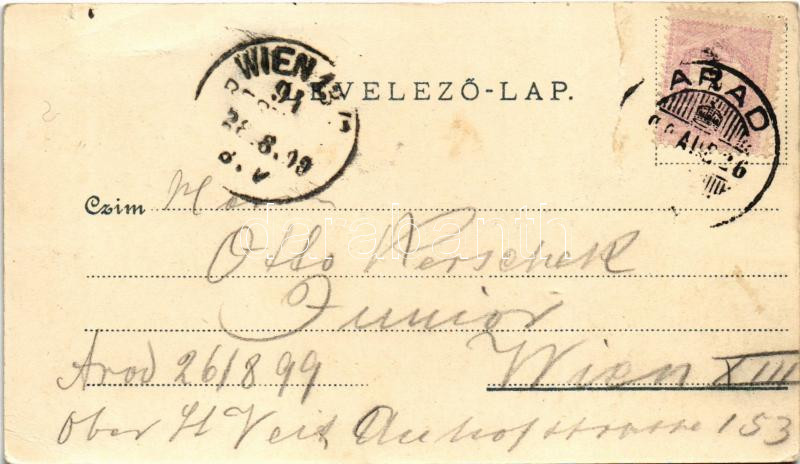 WIEN 13
91
28.8.99
8.V
LEVELEZŐ-LAP.
ARAD
99 AUG 26
Czim
Otto Kerschek
Junior
Wien XIII
Arad 26/8 99
Ober St Veit Auhofstrasse 153
darabanth